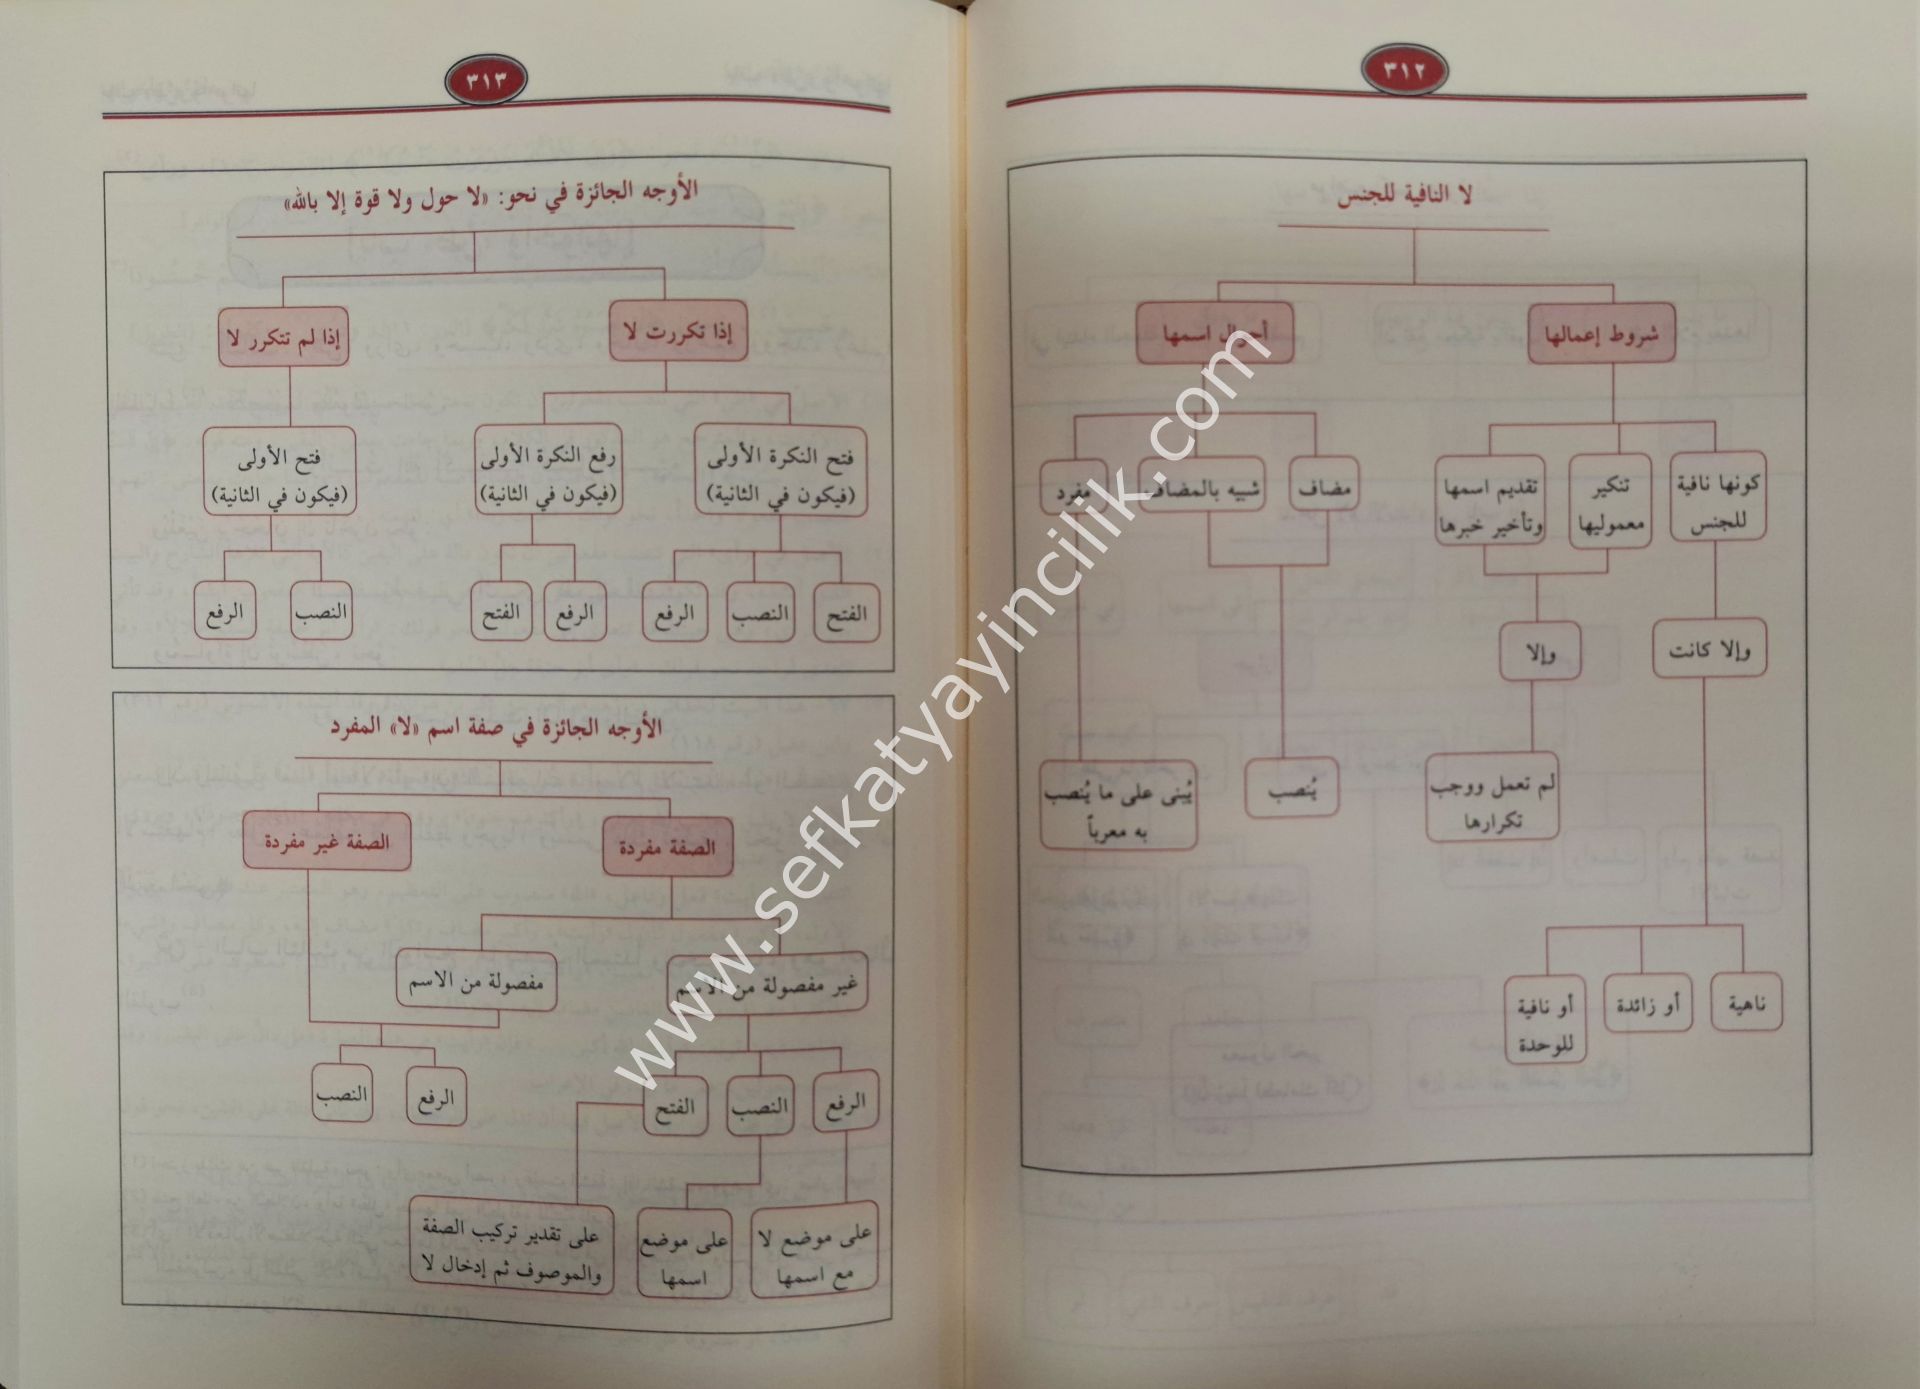 ٣١٢
لا النافية للجنس
شروط إعمالها
أحوال اسمها
كونها نافية
للجنس
تنكير
معموليها
تقديم اسمها
وتأخير خبرها
مضاف
شبيه بالمضاف
مفرد
وإلا كانت
وإلا
لم تعمل ووجب
تكرارها
يُنصب
يُبنى على ما يُنصب
به معرباً
ناهية
أو زائدة
أو نافية
للوحدة
٣١٣
الأوجه الجائزة في نحو: «لا حول ولا قوة إلا بالله»
إذا تكررت لا
إذا لم تتكرر لا
فتح النكرة الأولى
(فيكون في الثانية)
رفع النكرة الأولى
(فيكون في الثانية)
فتح الأولى
(فيكون في الثانية)
الفتح
النصب
الرفع
الرفع
الفتح
النصب
الرفع
الأوجه الجائزة في صفة اسم «لا» المفرد
الصفة مفردة
الصفة غير مفردة
غير مفصولة من الاسم
مفصولة من الاسم
الرفع
النصب
الفتح
الرفع
النصب
على موضع لا
مع اسمها
على موضع
اسمها
على تقدير تركيب الصفة
والموصوف ثم إدخال لا
www.sefkatyayincilik.com